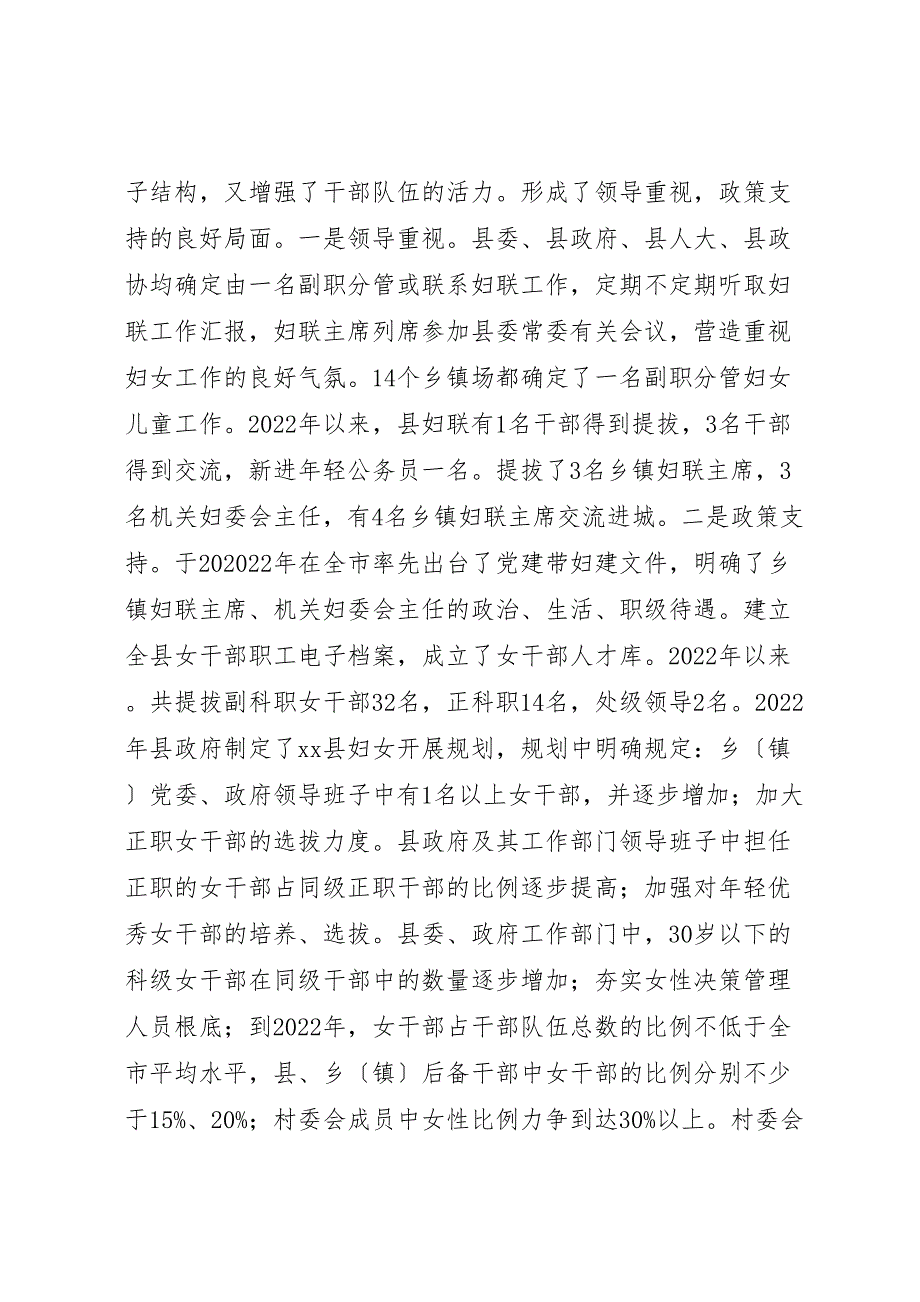 子结构，又增强了干部队伍的活力。形成了领导重视，政策支
持的良好局面。一是领导重视。县委、县政府、县人大、县政
协均确定由一名副职分管或联系妇联工作，定期不定期听取妇
联工作汇报，妇联主席列席参加县委常委有关会议，营造重视
妇女工作的良好气氛。14个乡镇场都确定了一名副职分管妇女
儿童工作。2022年以来，县妇联有1名干部得到提拔，3名干部
得到交流，新进年轻公务员一名。提拔了3名乡镇妇联主席，3
名机关妇委会主任，有4名乡镇妇联主席交流进城。二是政策支
持。于202022年在全市率先出台了党建带妇建文件，明确了乡
镇妇联主席、机关妇委会主任的政治、生活、职级待遇。建立
全县女干部职工电子档案，成立了女干部人才库。2022年以来
。共提拔副科职女干部32名，正科职14名，处级领导2名。2022
年县政府制定了xx县妇女开展规划，规划中明确规定：乡〔镇
〕党委、政府领导班子中有1名以上女干部，并逐步增加；加大
正职女干部的选拔力度。县政府及其工作部门领导班子中担任
正职的女干部占同级正职干部的比例逐步提高；加强对年轻优
秀女干部的培养、选拔。县委、政府工作部门中，30岁以下的
科级女干部在同级干部中的数量逐步增加；夯实女性决策管理
人员根底；到2022年，女干部占干部队伍总数的比例不低于全
市平均水平，县、乡〔镇〕后备干部中女干部的比例分别不少
于15%、20%；村委会成员中女性比例力争到达30%以上。村委会